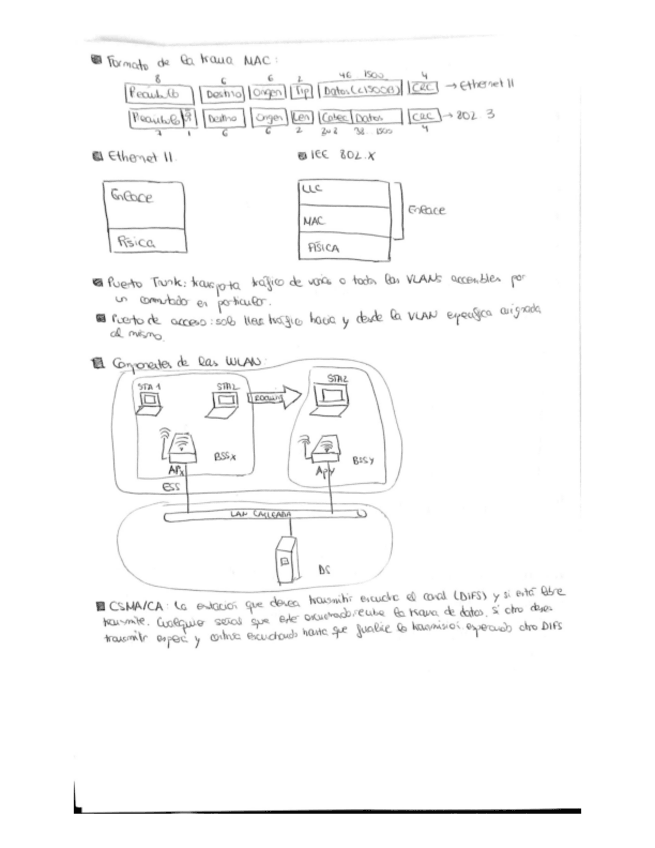 Formato de la trama MAC:
8 6 6 2 46 1500 4
Preámbulo Destino Origen Tip Datos (<1500B) CRC → Ethernet II
Preámbulo Destino Origen Len Cabec Datos CRC → 802.3
7 1 6 6 2 3 o 8 38 1500 4
Ethernet II IEE 802.X
Enlace LLC
MAC Enlace
Física FÍSICA
Puerto Trunk: transporta tráfico de varias o todas las VLANs accesibles por
un conmutado en particular.
Puerto de acceso: solo lleva tráfico hacia y desde la VLAN específica asignada
al mismo.
Componentes de las WLAN:
STA 1 STA2 STA2
BSSx BSSy
APx APy
ESS
LAN CABLEADA
DS
CSMA/CA: La estación que desea transmitir escucha el canal (DIFS) y si está libre
transmite. Cualquier señal que esté escuchando recibe la trama de datos, si otro desea
transmitir espera y continua escuchando hasta que finalice la transmisión esperando otro DIFS